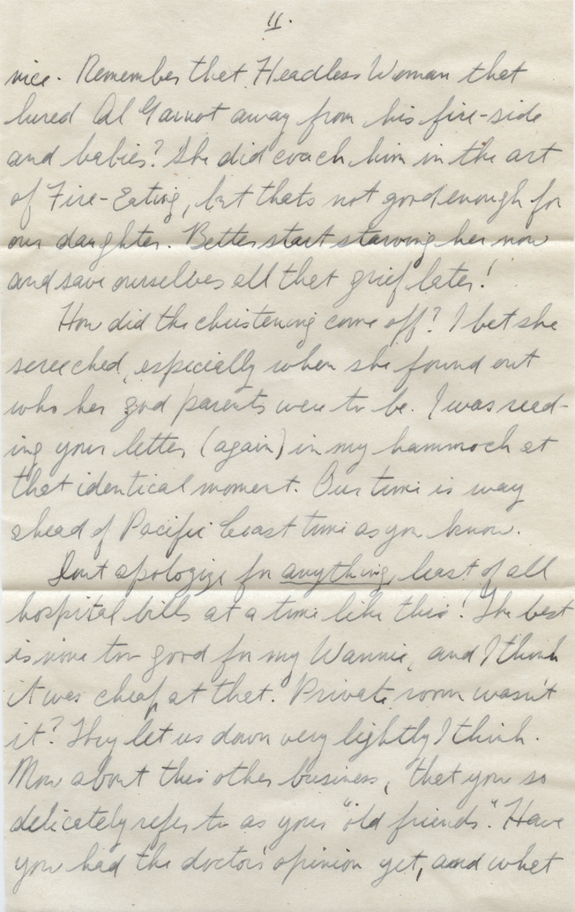 11.
nice. Remember that Headless Woman that
lured Al Garnot away from his fire-side
and babies? She did coach him in the art
of Fire-Eating, but thats not good enough for
our daughter. Better start starving her now
and save ourselves all that grief later!
How did the christening come off? I bet she
screeched, especially when she found out
who her god parents were to be. I was read-
ing your letter (again) in my hammock at
that identical moment. Our time is way
ahead of Pacific Coast time as you know.
Dont apologize for anything, least of all
hospital bills at a time like this! The best
is none too good for my Wannie, and I think
it was cheap at that. Private room wasn't
it? They let us down very lightly I think.
Now about this other business, that you so
delicately refer to as your "old friends". Have
you had the doctor's opinion yet, and what